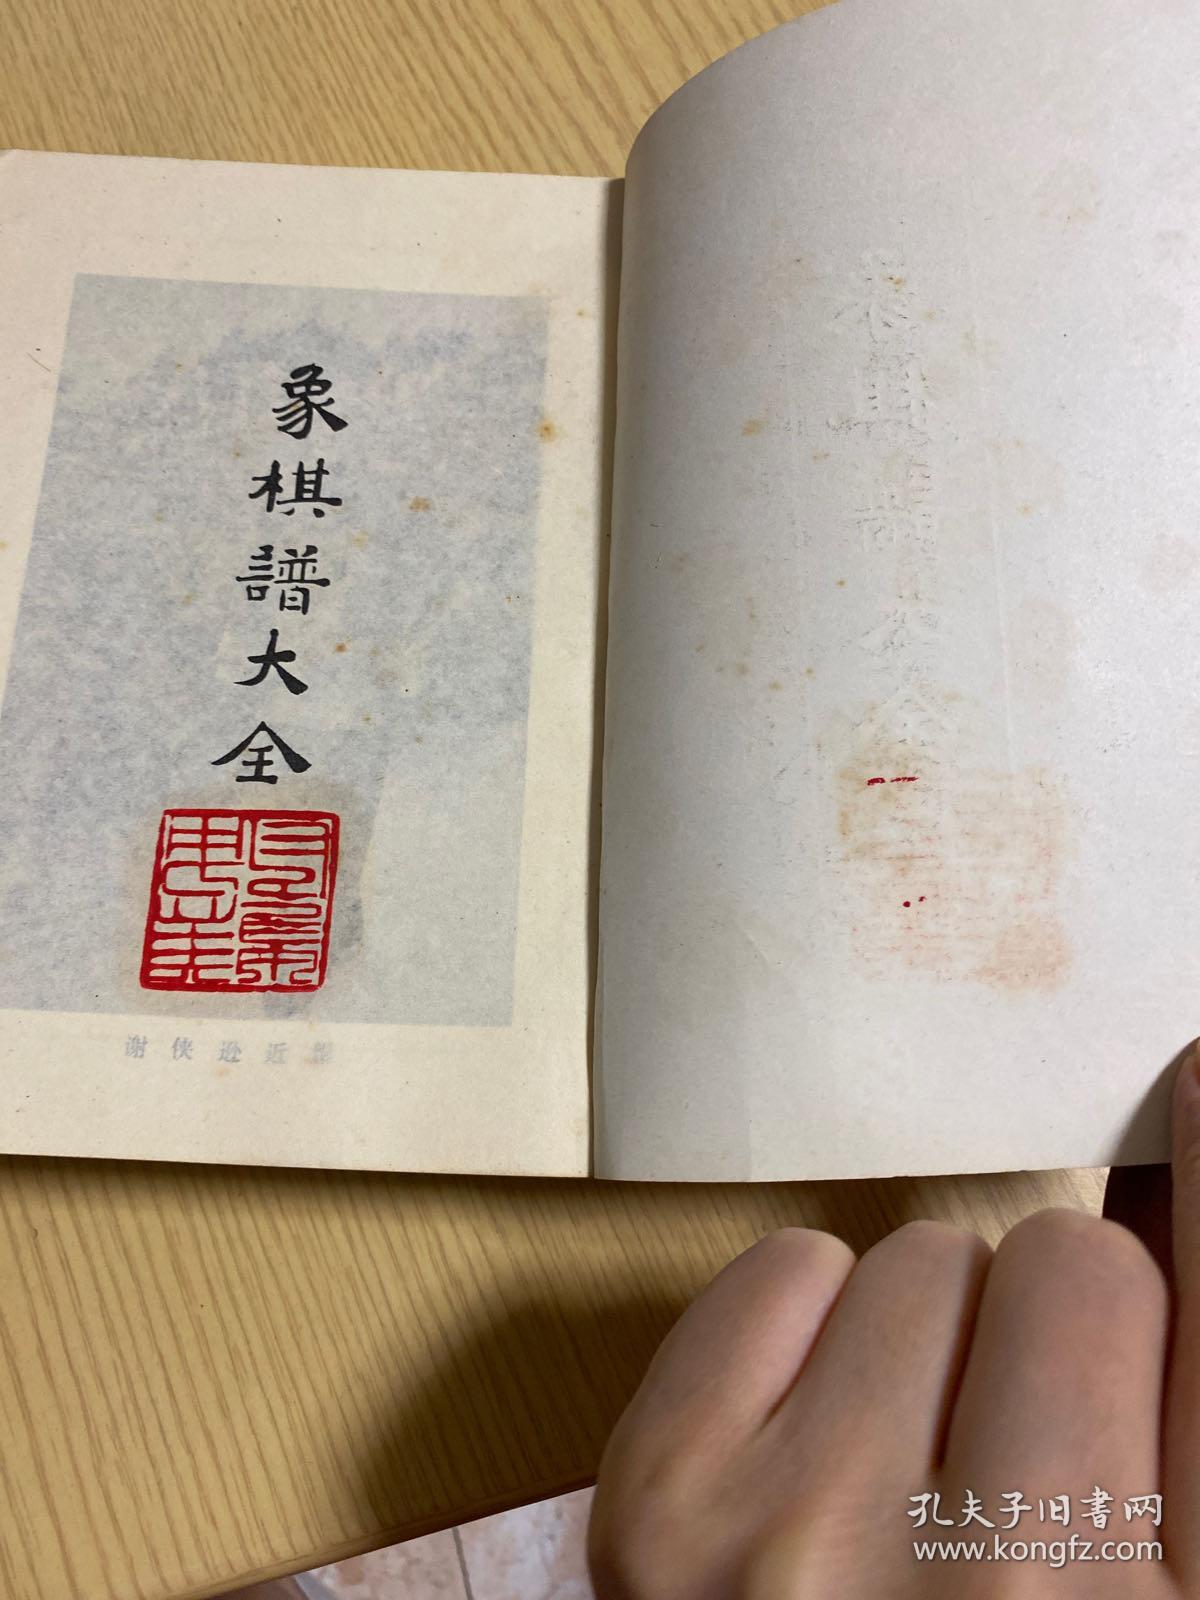 象棋譜大全
谢侠逊近
孔夫子旧书网
www.kongfz.com